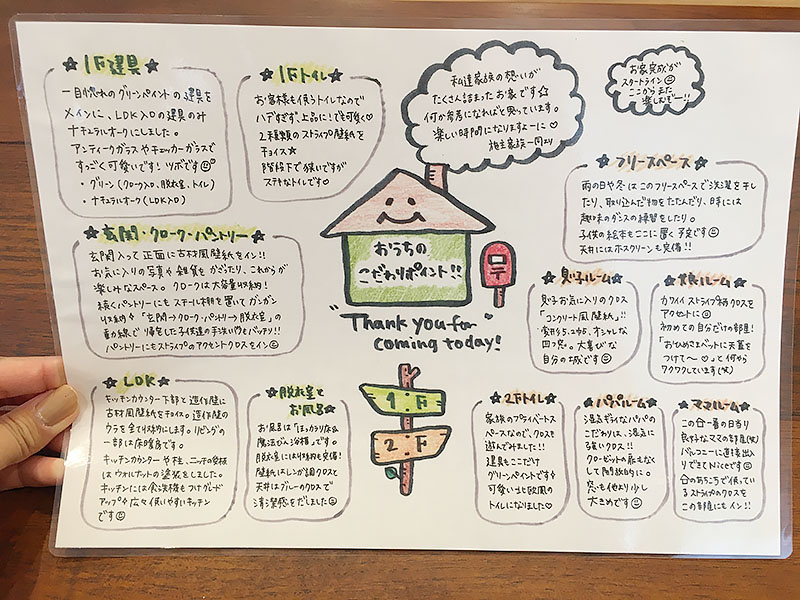 ★1F建具★
一目惚れのグリーンペイントの建具を
メインに、LDK入口の建具のみ
ナチュラルオークにしました。
アンティークガラスやチェッカーガラスで
すっごく可愛いです!ツボです
・グリーン(クローク入口、脱衣室、トイレ)
・ナチュラルオーク(LDK入口)
★1Fトイレ★
お客様も使うトイレなので
ハデすぎず、上品に!でも可愛く♡
2種類のストライプ壁紙を
チョイス☆
階段下で狭いですが
ステキなトイレです♡
私達家族の想いが
たくさん詰まったお家です☆
何か参考になればと思っています。
楽しい時間になりますよーに♡
施主家族一同より
お家完成が
スタートライン
ここからまた
楽しむぞー!!
★フリースペース★
雨の日や冬はこのフリースペースで洗濯を干し
たり、取り込んだ物をたたんだり、時には
趣味のダンスの練習をしたり。
子供の絵本もここに置く予定です
天井にはホスクリーンも完備!!
★玄関・クローク・パントリー★
玄関入って正面に古材風壁紙をイン!!
お気に入りの写真や雑貨をかざったり、これからが
楽しみなスペース。クロークは大容量収納!
続くパントリーにもステール棚を置いてガンガン
収納 「玄関→クローク→パントリー→脱衣室」の
動線で帰宅した子供達の手洗い付もバッチリ!!
パントリーにもストライプのアクセントクロスをイン
おうちの
こだわりポイント!!
"Thank you for
coming today!"
★息子ルーム★
息子お気に入りのクロス
「コンクリート風壁紙」!!
自分の城です
★娘ルーム★
カワイイストライプ柄クロスを
アクセントに
初めての自分だけの部屋!
「おひめさまベットに天蓋を
つけて〜♡」って何から
ワクワクしています(笑)
★LDK★
キッチンカウンター下部と造作壁に
古材風壁紙をチョイス。造作壁の
ウラを全て収納にします。リビングの
一部は床暖房です。
キッチンカウンターや柱、ニッチの
はウォルナットの塗装をしました。
キッチンには食洗機もつけグレード
アップ 広々使いやすいキッチン
です
★脱衣室と
お風呂★
お風呂は「ほっカラリ床&
魔法びん浴槽」です。
脱衣室には収納も完備!
壁紙はレンガ調クロスで
天井はブルーのクロスで
清潔感をだしました
1:F
2:F
★2Fトイレ★
家族のプライベートス
ペースなので、クロスを
遊んでみました!!
建具もここだけ
グリーンペイントです
可愛い北欧風の
トイレになりました♡
★パパルーム★
湿気ギライなパパの
こだわりは、湿気に
強いクロス!!
クローゼットの扉はなく
して開放的に。
窓も他より少し
大きめです
★ママルーム★
この家一番の日当り
良好なママの部屋(笑)
バルコニーに直接出入
りできてNiceです
家のあちこちで使っている
ストライプのクロスを
この部屋にもイン!!